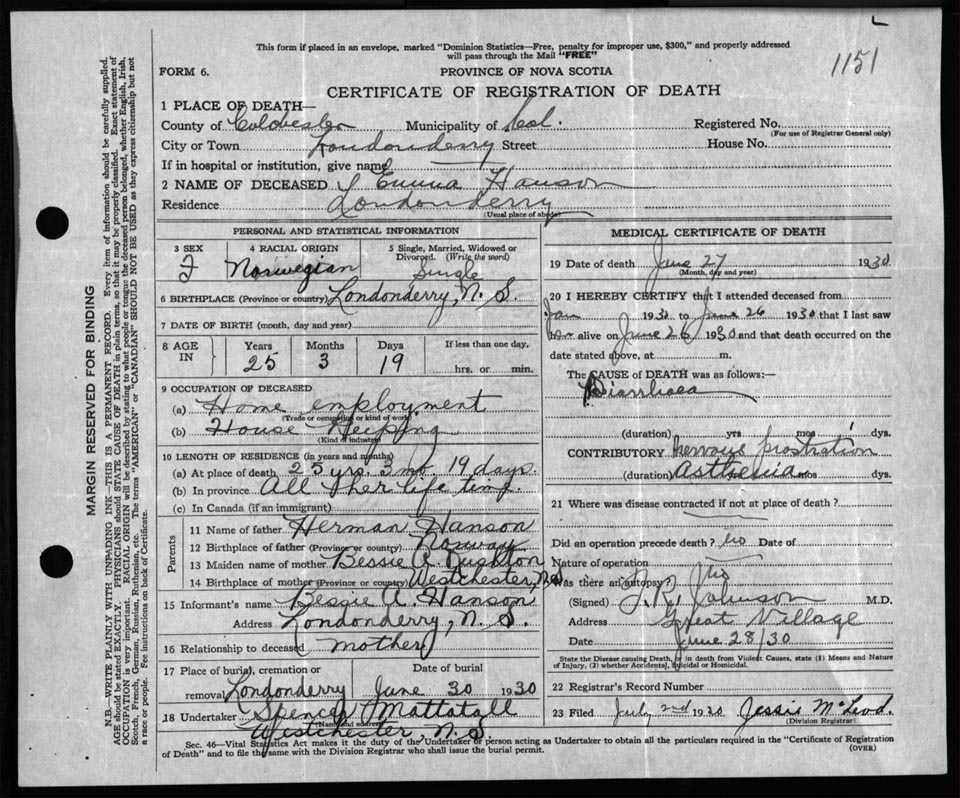 1151
This form if placed in an envelope, marked "Dominion Statistics—Free, penalty for improper use, $300," and properly addressed
will pass through the Mail "FREE"
FORM 6.
PROVINCE OF NOVA SCOTIA
CERTIFICATE OF REGISTRATION OF DEATH
1 PLACE OF DEATH—
County of Colchester Municipality of Col. Registered No.
(For use of Registrar General only)
City or Town Londonderry Street House No.
If in hospital or institution, give name
2 NAME OF DECEASED Emma Hanson
Residence Londonderry
(Usual place of abode)
PERSONAL AND STATISTICAL INFORMATION
3 SEX 4 RACIAL ORIGIN 5 Single, Married, Widowed or
Divorced. (Write the word)
F Norwegian Single
6 BIRTHPLACE (Province or country) Londonderry, N. S.
7 DATE OF BIRTH (month, day and year)
8 AGE IN Years Months Days If less than one day,
25 3 19 hrs. or min.
9 OCCUPATION OF DECEASED
(a) Home employment
(Trade or occupation or kind of work)
(b) House Keeping
(Kind of industry)
10 LENGTH OF RESIDENCE (in years and months)
(a) At place of death 25 yrs. 3 mo 19 days.
(b) In province All her life time.
(c) In Canada (if an immigrant)
Parents
11 Name of father Herman Hanson
12 Birthplace of father (Province or country) Norway
13 Maiden name of mother Bessie A. Rushton
14 Birthplace of mother (Province or country) Westchester, N.S.
15 Informant's name Bessie A. Hanson
Address Londonderry, N. S.
16 Relationship to deceased mother
17 Place of burial, cremation or Date of burial
removal Londonderry June 30 1930
18 Undertaker Spencer Mattatall
(Name and address)
Westchester, N. S.
MEDICAL CERTIFICATE OF DEATH
19 Date of death June 27 1930
(Month, day and year)
20 I HEREBY CERTIFY that I attended deceased from
Jan 1930 to June 26 1930 that I last saw
her alive on June 26 1930 and that death occurred on the
date stated above, at m.
The CAUSE of DEATH was as follows:—
Diarrhoea
(duration) yrs mos dys.
CONTRIBUTORY Nervous prostration
(duration) Asthenia mos dys.
21 Where was disease contracted if not at place of death?
Did an operation precede death? no Date of
Nature of operation
Was there an autopsy? no
(Signed) Johnson M.D.
Address Great Village
Date June 28/30
State the Disease causing Death, or in death from Violent Causes, state (1) Means and Nature
of Injury, (2) whether Accidental, Suicidal or Homicidal.
22 Registrar's Record Number
23 Filed July 2nd 1930 Jessie McLeod.
(Division Registrar)
Sec. 46—Vital Statistics Act makes it the duty of the Undertaker or person acting as Undertaker to obtain all the particulars required in the "Certificate of Registration
of Death" and to file the same with the Division Registrar who shall issue the burial permit.
(OVER)
MARGIN RESERVED FOR BINDING
N.B.—WRITE PLAINLY WITH UNFADING INK—THIS IS A PERMANENT RECORD. Every item of information should be carefully supplied.
AGE should be stated EXACTLY. PHYSICIANS should STATE CAUSE OF DEATH in plain terms, so that it may be properly classified. Exact statement of
OCCUPATION is very important. RACIAL ORIGIN will be described by stating to what people or tongue the deceased person belonged, whether English, Irish,
Scotch, French, German, Russian, Ruthenian, etc. The terms "AMERICAN" or "CANADIAN" SHOULD NOT BE USED as they express citizenship but not
a race or people. See instructions on back of Certificate.